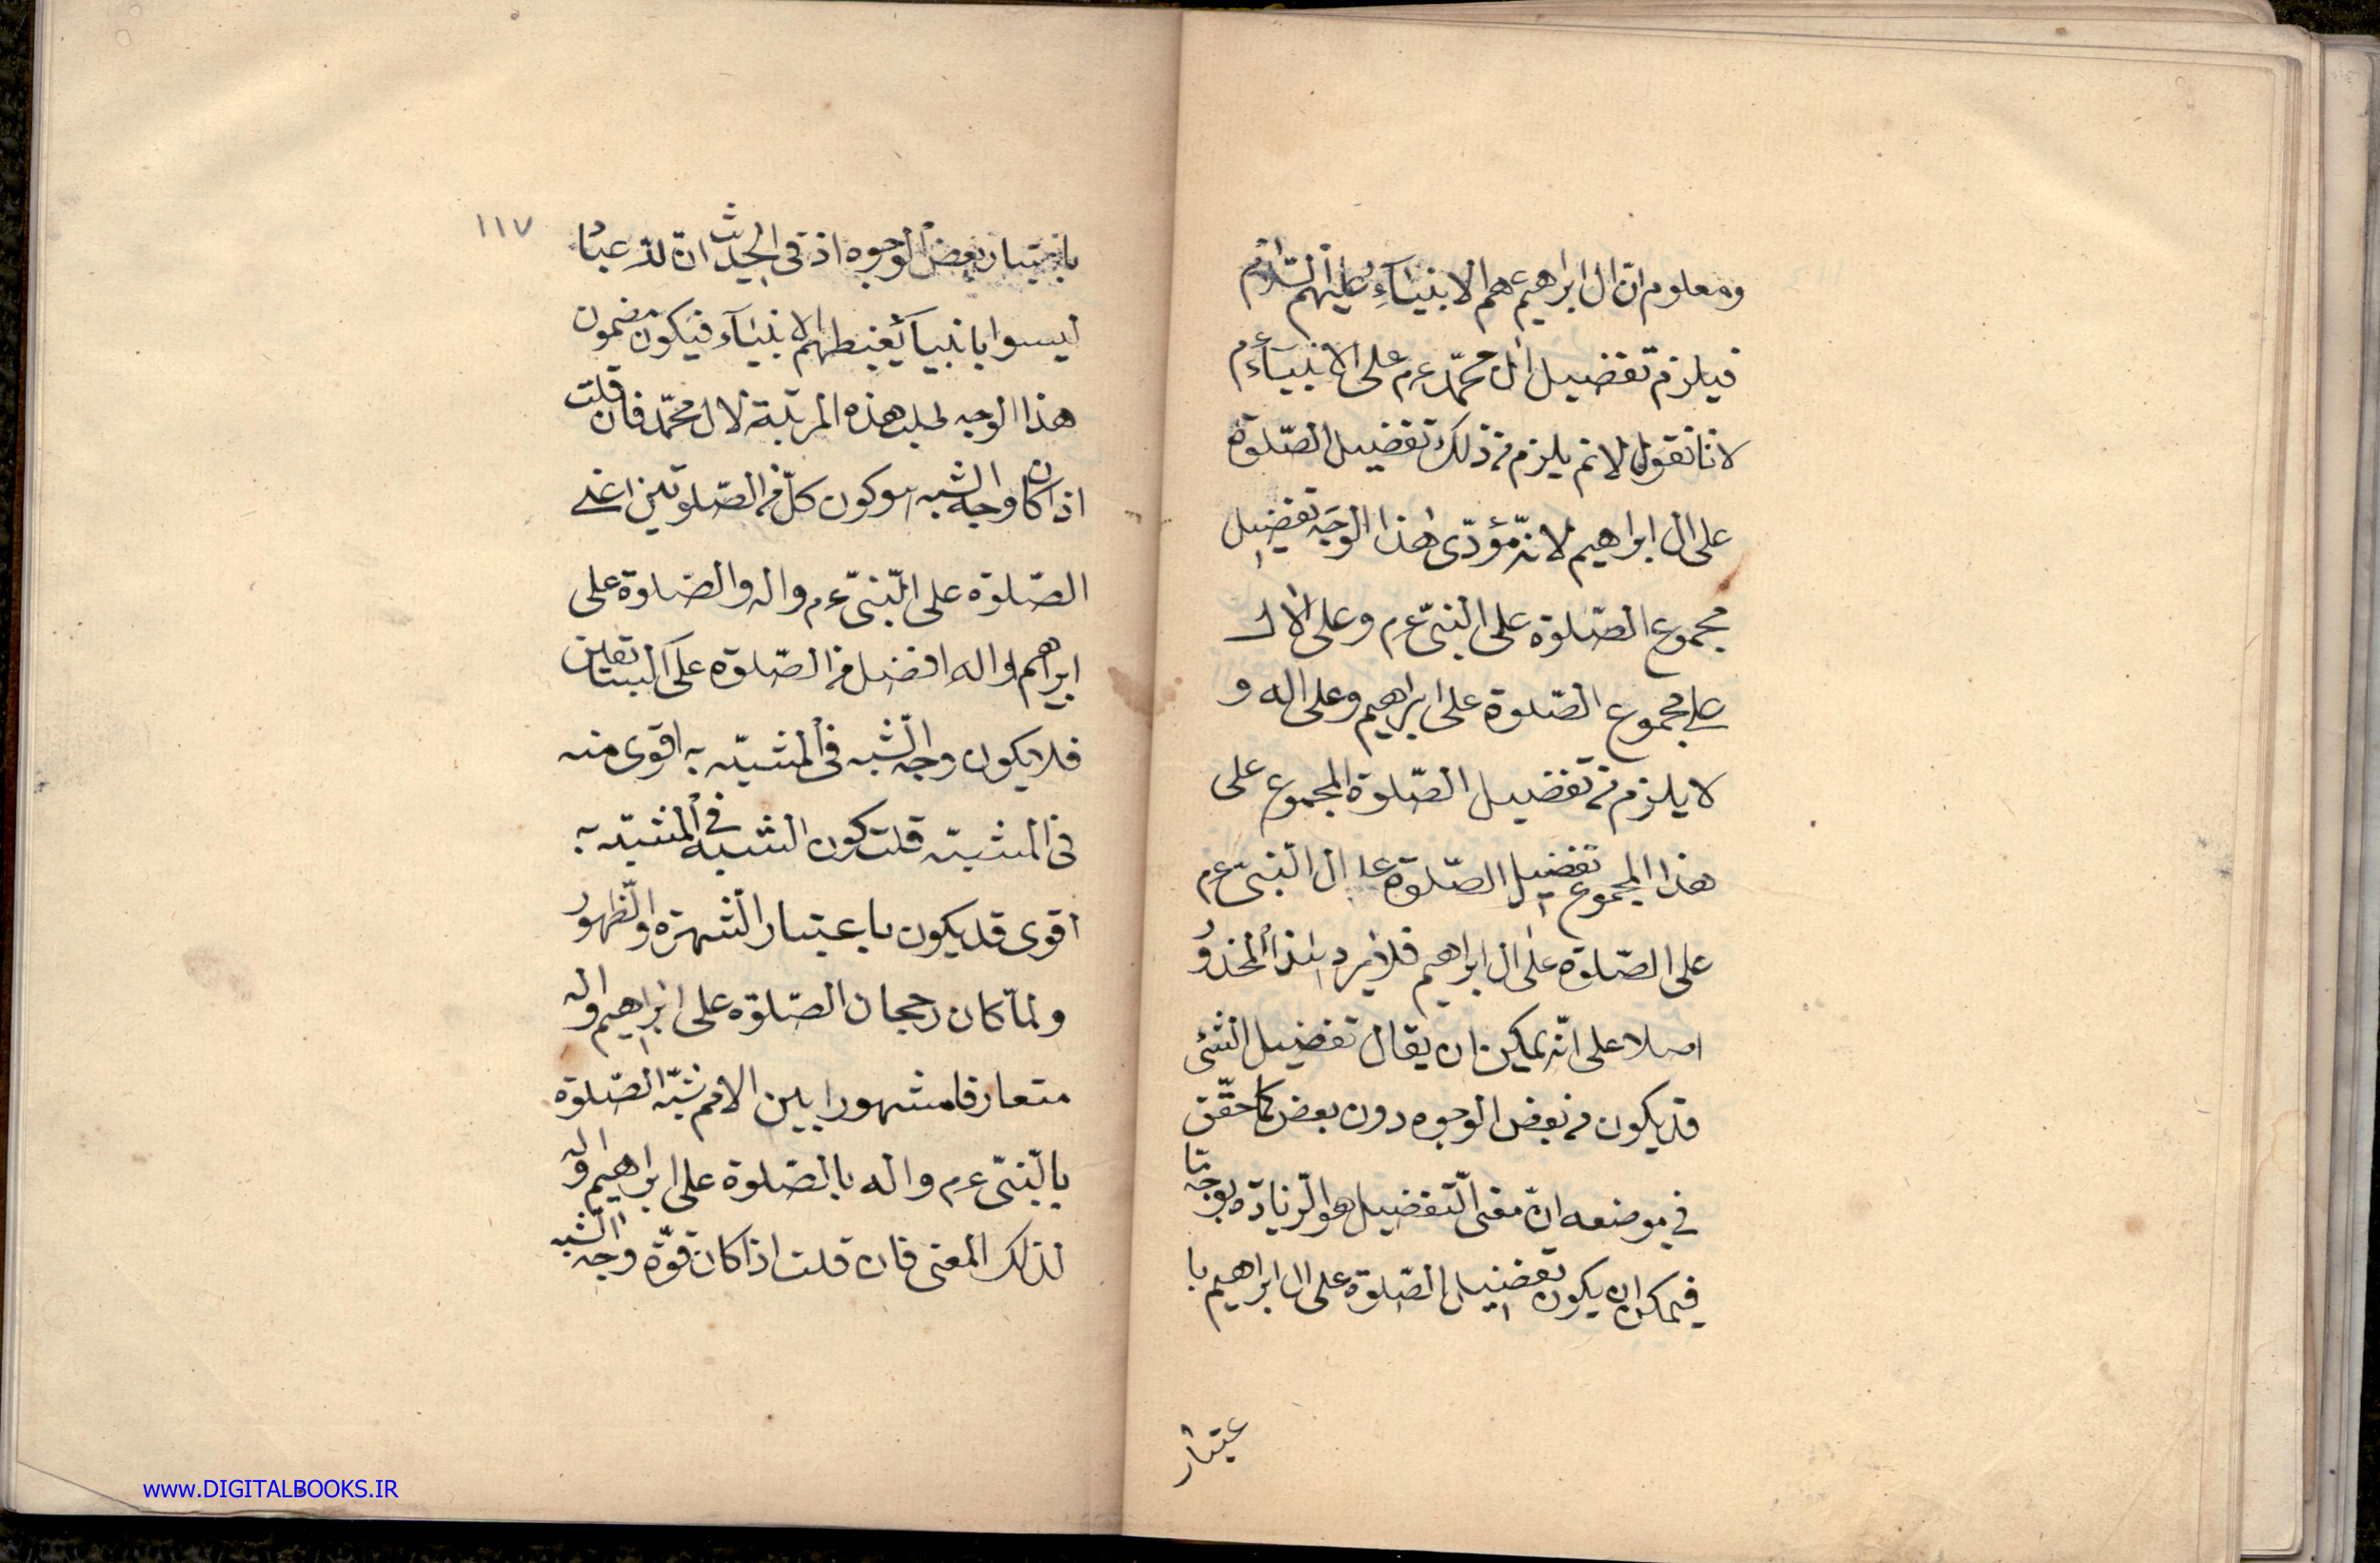 ومعلوم ان ال ابراهيم هم الانبيآء عليهم السّلام
فيلزم تفضيل ال محمّد عم على الانبيآء عم
لانا نقول لا نم يلزم من ذلك تفضيل الصّلوة
على ال ابراهيم لانه مؤدّى هذا الوجه تفضيل
مجموع الصّلوة على النبىّ عم وعلى الال
على مجموع الصّلوة على ابراهيم وعلى اله و
لا يلزم من تفضيل الصّلوة المجموع على
هذا المجموع تفضيل الصّلوة على ال النبىّ عم
على الصّلوة على ال ابراهيم فلا يرد هذا المحذور
اصلا على انّه يمكن ان يقال تفضيل الشئ
قد يكون من بعض الوجوه دون بعض كما حقّق
في موضعه انّ معنى التّفضيل هو الزّيادة بوجه ما
فيمكن ان يكون تفضيل الصّلوة على ال ابراهيم با
عتبار
١١٧
باعتبار بعض الوجوه اذ فى الحديث انّ لله عبادا
ليسوا بانبيآء يغبطهم الانبيآء فيكون مضمون
هذا الوجه طلب هذه المرتبة لال محمّد فان قلت
اذا كان وجه الشبه هو كون كلّ من الصّلوتين اعنى
الصّلوة على النّبىّ عم واله والصّلوة على
ابراهيم واله افضل من الصّلوة على السابقين
فلا يكون وجه الشّبه فى المشبّه به اقوى منه
فى المشبّه قلت كون الشبه فى المشبّه به
اقوى قد يكون باعتبار الشّهرة والظّهور
ولمّا كان رجحان الصّلوة على ابراهيم واله
متعارفا مشهورا بين الامم شبّه الصّلوة
بالنّبىّ عم واله بالصّلوة على ابراهيم واله
لذلك المعنى فان قلت اذا كان قوّة وجه الشّبه
www.DIGITALBOOKS.IR